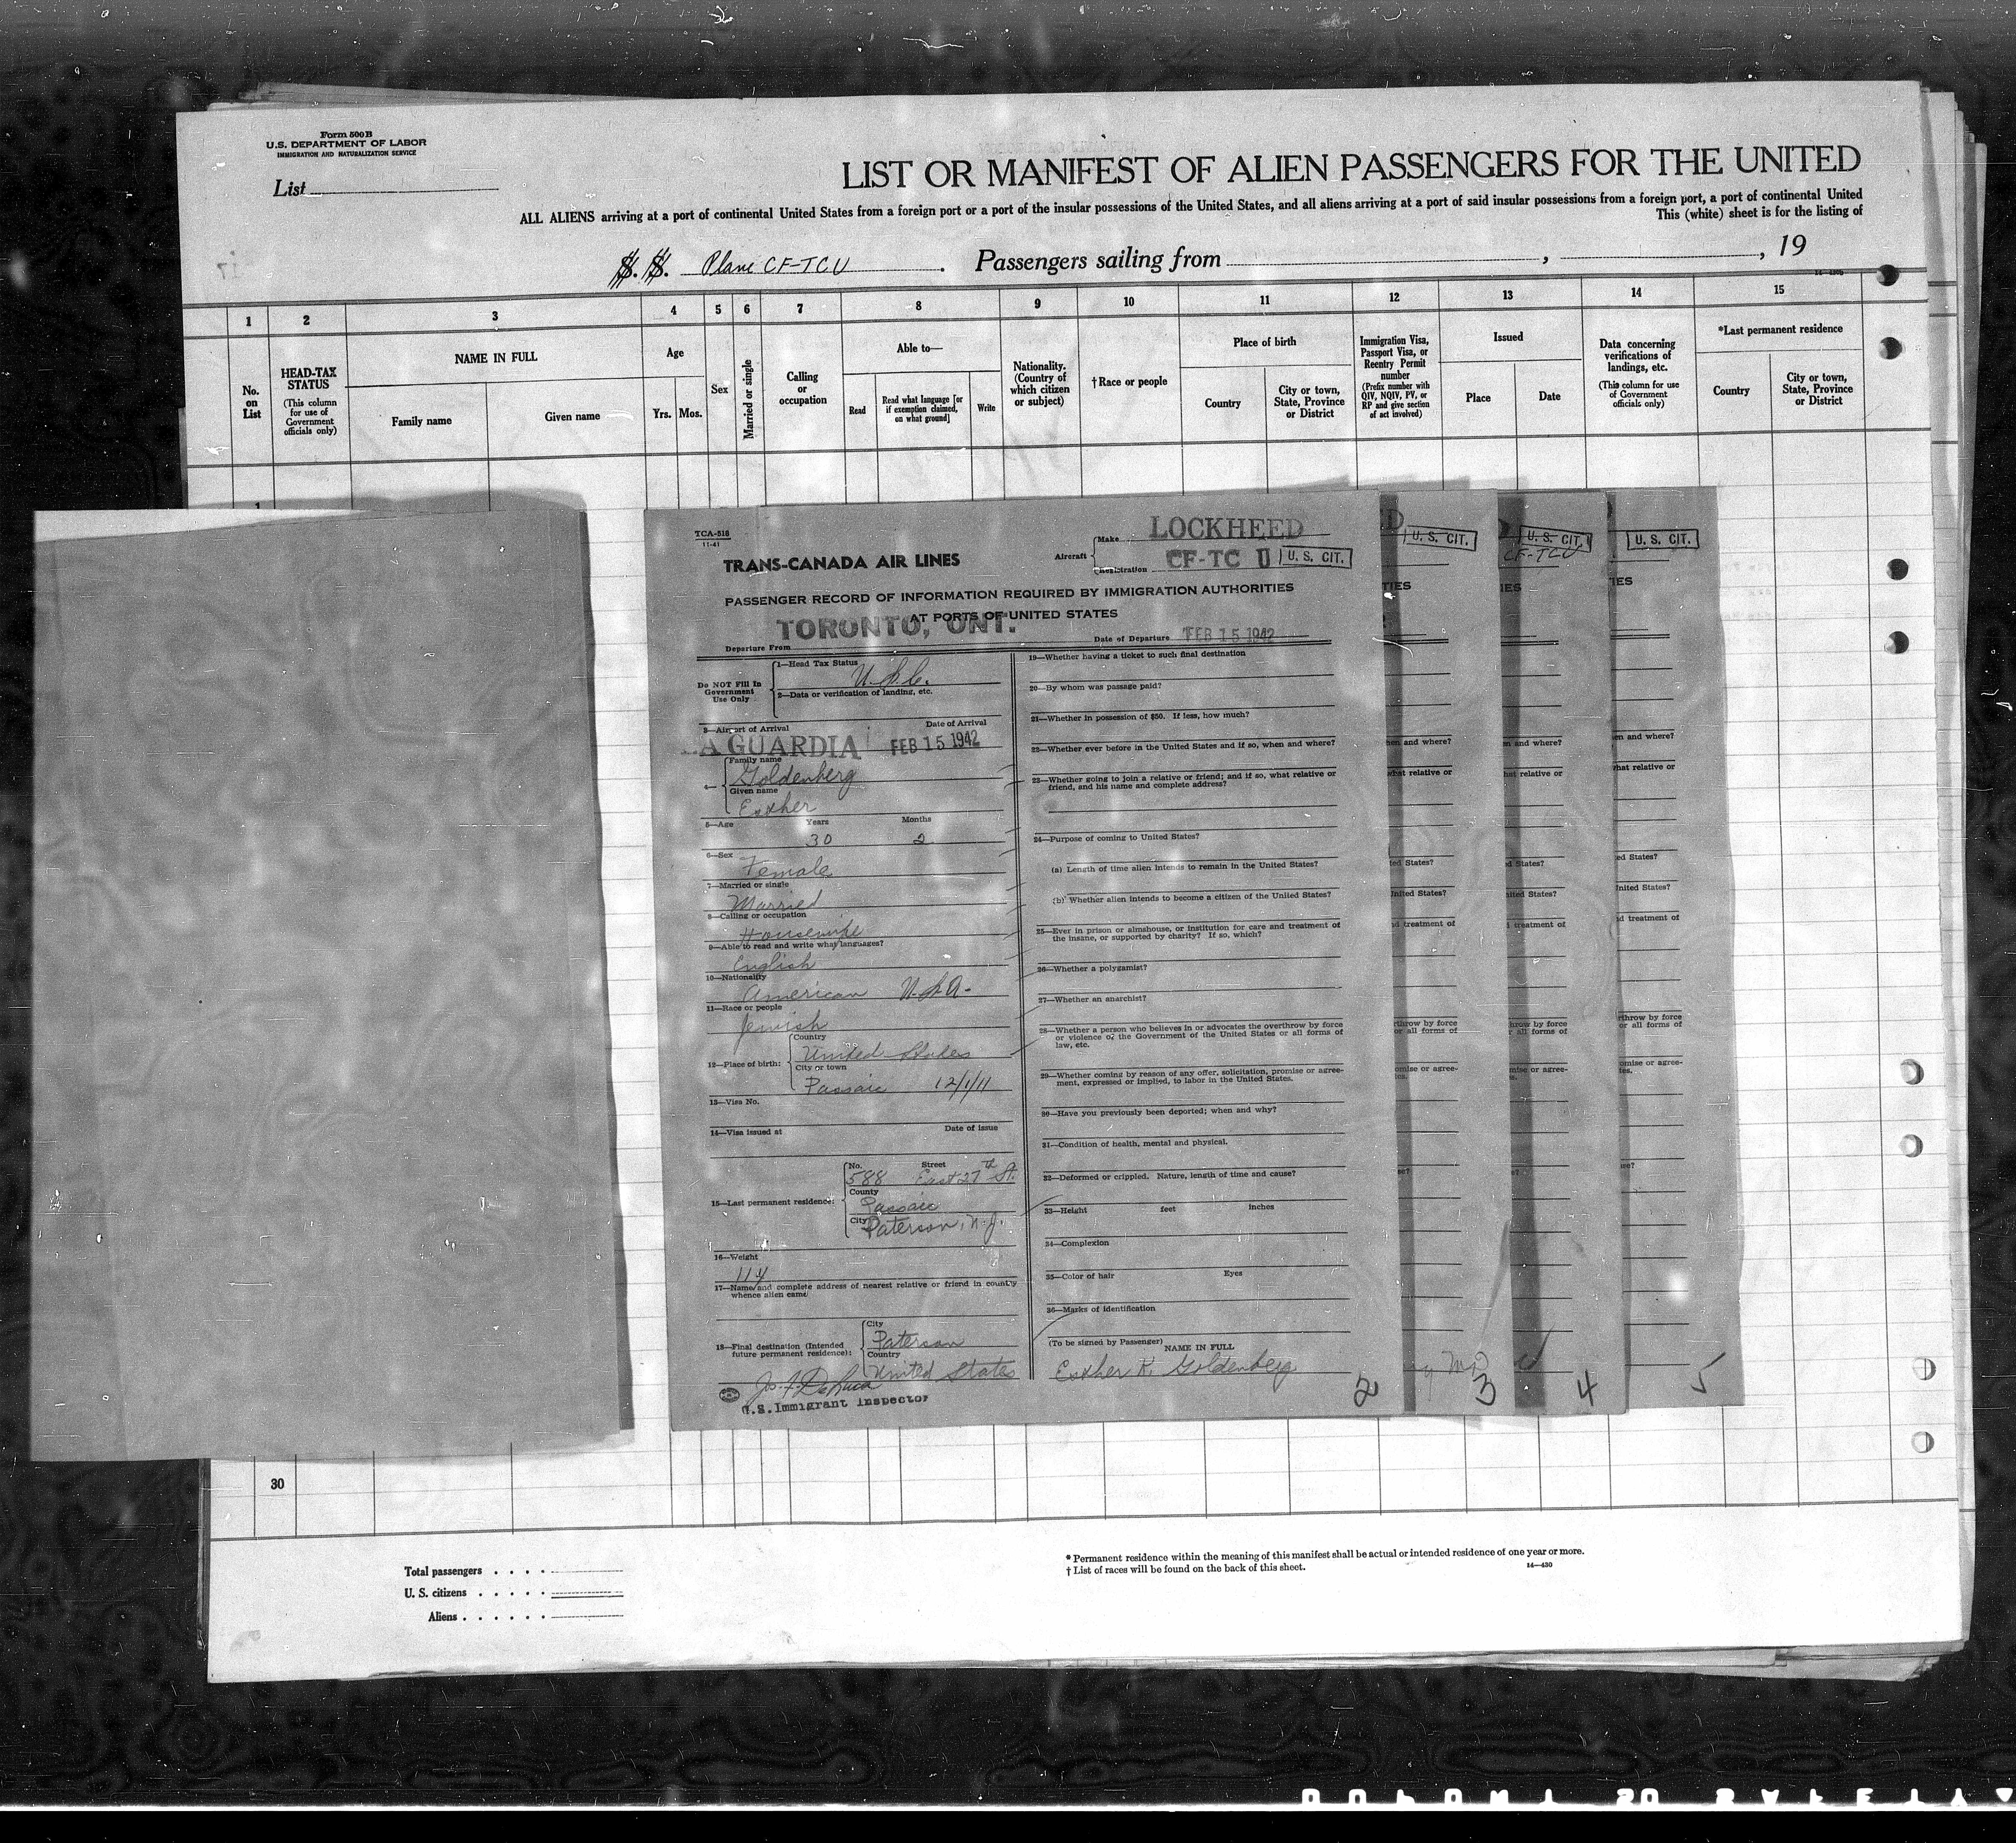 Form 500 B
U.S. DEPARTMENT OF LABOR
IMMIGRATION AND NATURALIZATION SERVICE
List
LIST OR MANIFEST OF ALIEN PASSENGERS FOR THE UNITED
ALL ALIENS arriving at a port of continental United States from a foreign port or a port of the insular possessions of the United States, and all aliens arriving at a port of said insular possessions from a foreign port, a port of continental United
This (white) sheet is for the listing of
S. S. Plane CF-TCU. Passengers sailing from , , 19
1 2 3 4 5 6 7 8 9 10 11 12 13 14 15
No. on List
HEAD-TAX STATUS
(This column for use of Government officials only)
NAME IN FULL
Family name
Given name
Age
Yrs. Mos.
Sex
Married or single
Calling or occupation
Able to—
Read
Read what language [or if exemption claimed, on what ground]
Write
Nationality. (Country of which citizen or subject)
† Race or people
Place of birth
Country
City or town, State, Province or District
Immigration Visa, Passport Visa, or Reentry Permit number
(Prefix number with QIV, NQIV, PV, or RP and give section of act involved)
Issued
Place
Date
Data concerning verifications of landings, etc.
(This column for use of Government officials only)
*Last permanent residence
Country
City or town, State, Province or District
TCA-518
11-41
TRANS-CANADA AIR LINES
Aircraft
Make LOCKHEED
Registration CF-TC U U. S. CIT.
PASSENGER RECORD OF INFORMATION REQUIRED BY IMMIGRATION AUTHORITIES
AT PORTS OF UNITED STATES
Departure From TORONTO, ONT.
Date of Departure FEB 15 1942
Do NOT Fill In Government Use Only
1—Head Tax Status U.S.C.
2—Data or verification of landing, etc.
3—Airport of Arrival Date of Arrival
A GUARDIA FEB 15 1942
4— Family name
Goldenberg
Given name
Esther
5—Age Years Months
30 2
6—Sex
Female
7—Married or single
Married
8—Calling or occupation
Housewife
9—Able to read and write what languages?
English
10—Nationality
American U.S.A.
11—Race or people
Jewish
12—Place of birth:
Country
United States
City or town
Passaic 12/1/11
13—Visa No.
14—Visa issued at Date of issue
15—Last permanent residence:
No. Street
588 East 27th St.
County
Passaic
City
Paterson, N.J.
16—Weight
114
17—Name and complete address of nearest relative or friend in country whence alien came
18—Final destination (Intended future permanent residence):
City
Paterson
Country
United States
U.S. Immigrant Inspector
19—Whether having a ticket to such final destination
20—By whom was passage paid?
21—Whether in possession of $50. If less, how much?
22—Whether ever before in the United States and if so, when and where?
23—Whether going to join a relative or friend; and if so, what relative or friend, and his name and complete address?
24—Purpose of coming to United States?
(a) Length of time alien intends to remain in the United States?
(b) Whether alien intends to become a citizen of the United States?
25—Ever in prison or almshouse, or institution for care and treatment of the insane, or supported by charity? If so, which?
26—Whether a polygamist?
27—Whether an anarchist?
28—Whether a person who believes in or advocates the overthrow by force or violence of the Government of the United States or all forms of law, etc.
29—Whether coming by reason of any offer, solicitation, promise or agreement, expressed or implied, to labor in the United States.
30—Have you previously been deported; when and why?
31—Condition of health, mental and physical.
32—Deformed or crippled. Nature, length of time and cause?
33—Height feet inches
34—Complexion
35—Color of hair Eyes
36—Marks of identification
(To be signed by Passenger)
NAME IN FULL
Esther K. Goldenberg
2
U. S. CIT.
3
U. S. CIT.
CF-TCU
4
U. S. CIT.
5
30
Total passengers
U. S. citizens
Aliens
* Permanent residence within the meaning of this manifest shall be actual or intended residence of one year or more.
† List of races will be found on the back of this sheet.
14—430